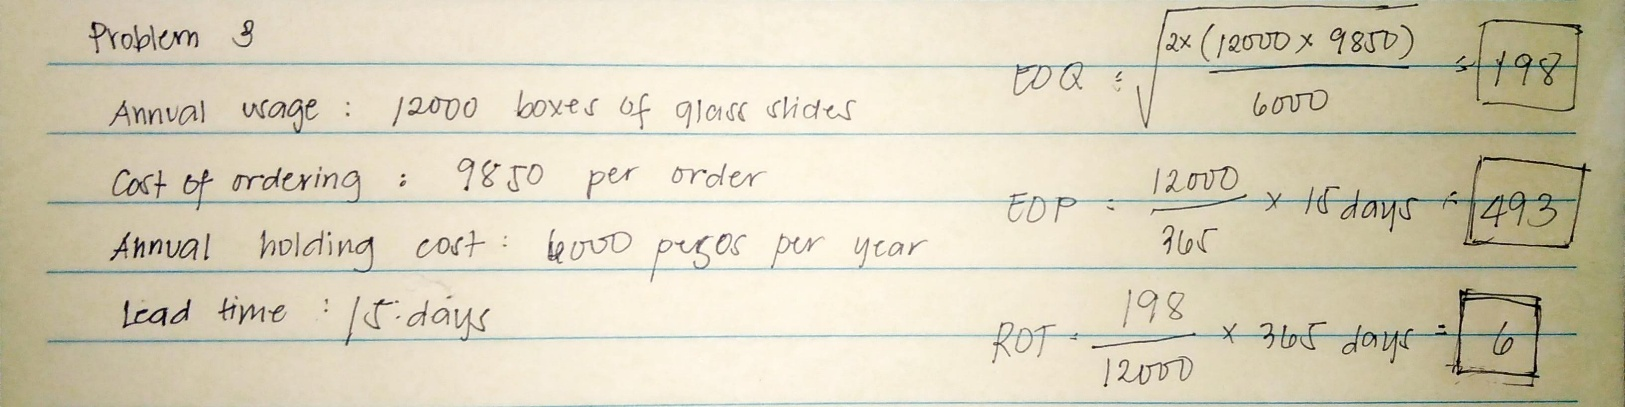 Problem 3
Annual usage : 12000 boxes of glass slides
Cost of ordering : 9850 per order
Annual holding cost : 6000 pesos per year
Lead time : 15 days
EOQ = √ 2x (12000 x 9850) / 6000 = 198
EOP = 12000 / 365 x 15 days = 493
ROT = 198 / 12000 x 365 days = 6